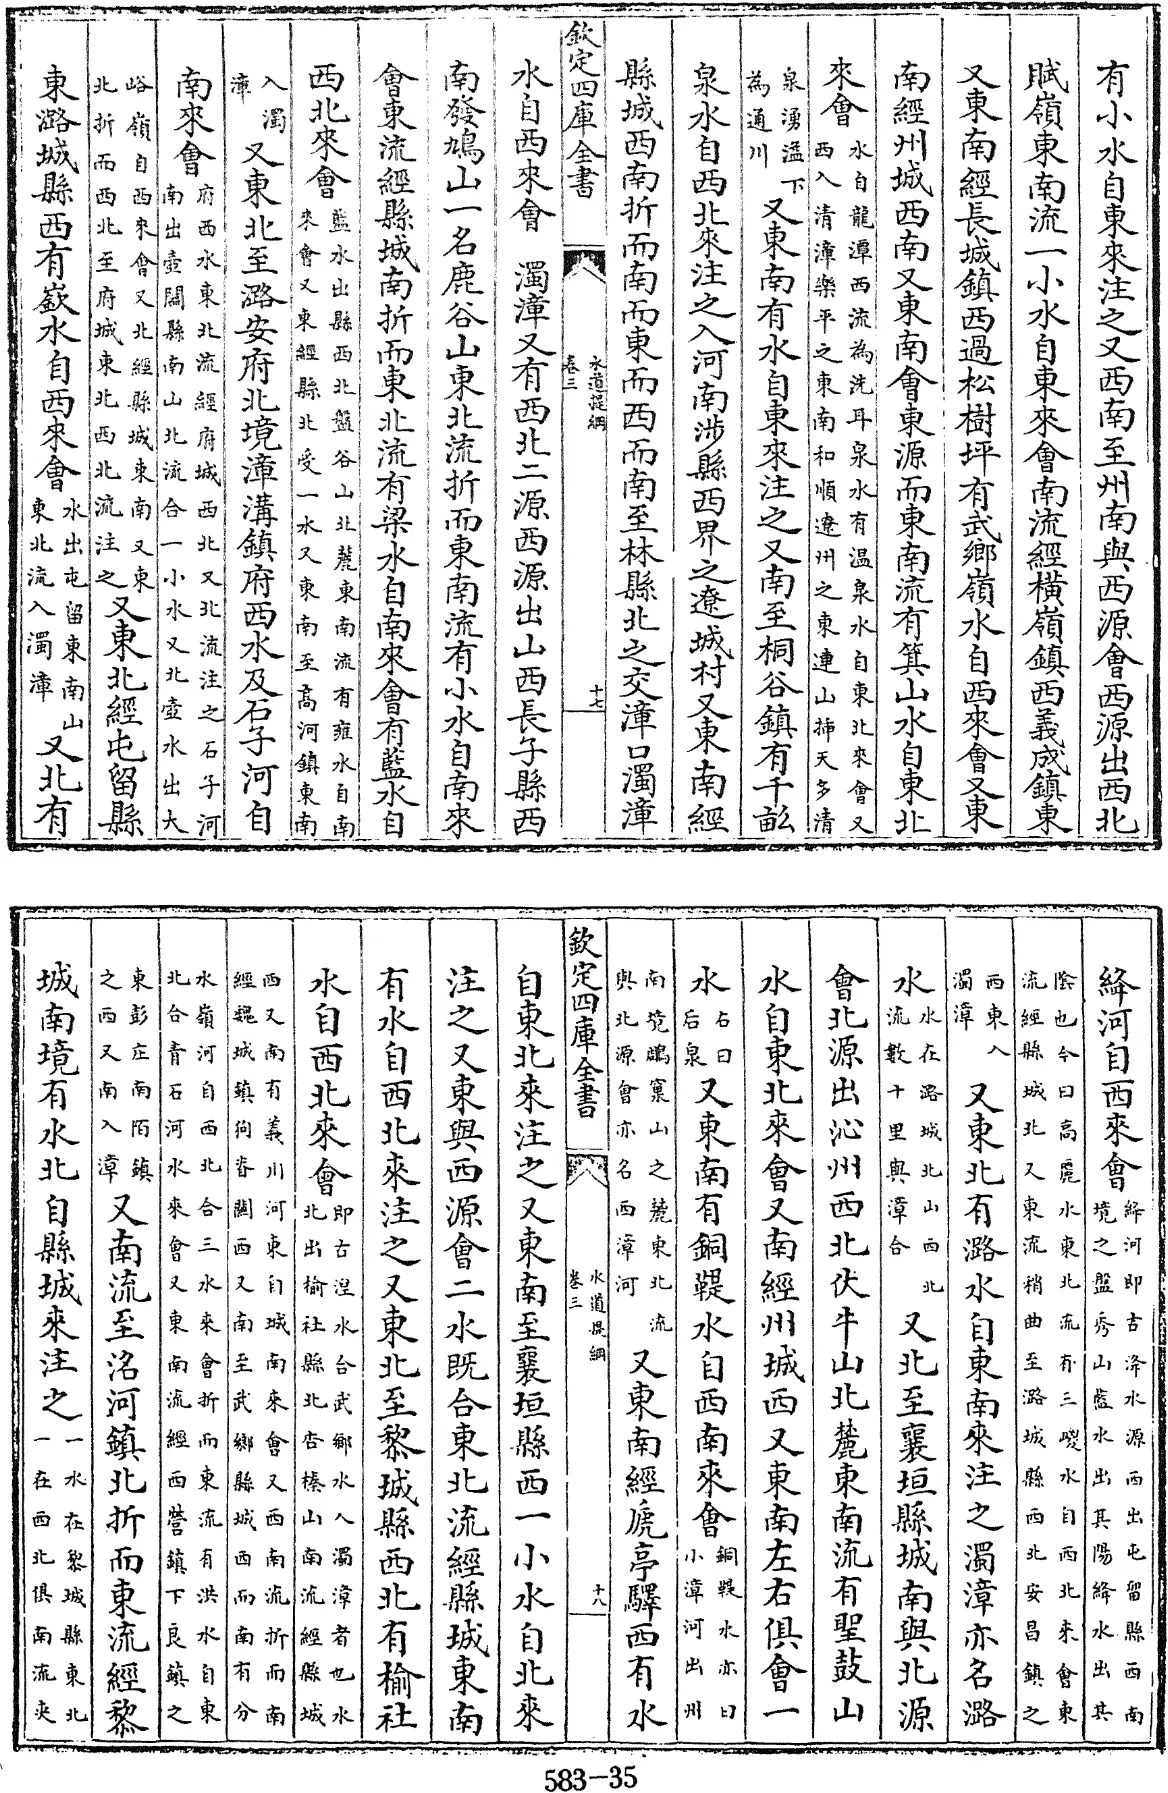 有小水自東來注之又西南至州南與西源會西源出西北
賦嶺東南流一小水自東來會南流經橫嶺鎮西義成鎮東
又東南經長城鎮西過松樹坪有武鄉嶺水自西來會又東
南經州城西南又東南會東源而東南流有箕山水自東北
來會水自龍潭西流為洗耳泉水有温泉水自東北來會又
西入清漳樂平之東南和順遼州之東連山挿天多清
泉湧溢下
為通川又東南有水自東來注之又南至桐谷鎮有千畝
泉水自西北來注之入河南涉縣西界之遼城村又東南經
縣城西南折而南而東而西而南至林縣北之交漳口濁漳
欽定四庫全書
水道提綱
卷三
十七
水自西來會 濁漳又有西北二源西源出山西長子縣西
南發鳩山一名鹿谷山東北流折而東南流有小水自南來
會東流經縣城南折而東北流有梁水自南來會有藍水自
西北來會藍水出縣西北盤谷山北麓東南流有雍水自南
來會又東經縣北受一水又東南至高河鎮東南
入濁
漳又東北至潞安府北境漳溝鎮府西水及石子河自
南來會府西水東北流經府城西北又北流注之石子河
南出壺關縣南山北流合一小水又北壺水出大
峪嶺自西來會又北經縣城東南又東
北折而西北至府城東北西北流注之又東北經屯留縣
東潞城縣西有嶔水自西來會水出屯留東南山
東北流入濁漳又北有
絳河自西來會絳河即古洚水源西出屯留縣西南
境之盤秀山藍水出其陽絳水出其
陰也今曰高麗水東北流有三嵕水自西北來會東
流經縣城北又東流稍曲至潞城縣西北安昌鎮之
西東入
濁漳又東北有潞水自東南來注之濁漳亦名潞
水水在潞城北山西北
流數十里與漳合又北至襄垣縣城南與北源
會北源出沁州西北伏牛山北麓東南流有聖鼓山
水自東北來會又南經州城西又東南左右俱會一
水右曰
后泉又東南有銅鞮水自西南來會銅鞮水亦曰
小漳河出州
南境鵰窠山之麓東北流
與北源會亦名西漳河又東南經虒亭驛西有水
欽定四庫全書
水道提綱
卷三
十八
自東北來注之又東南至襄垣縣西一小水自北來
注之又東與西源會二水既合東北流經縣城東南
有水自西北來注之又東北至黎城縣西北有榆社
水自西北來會即古湼水合武鄉水入濁漳者也水
北出榆社縣北杏榛山南流經縣城
西又南有義川河東自城南來會又西南流折而南
經魏城鎮狥眷關西又南至武鄉縣城西而南有分
水嶺河自西北合三水來會折而東流有洪水自東
北合青石河水來會又東南流經西營鎮下良鎮之
東彭庄南陌鎮
之西又南入漳又南流至洺河鎮北折而東流經黎
城南境有水北自縣城來注之一水在黎城縣東北
一在西北俱南流夾
583-35